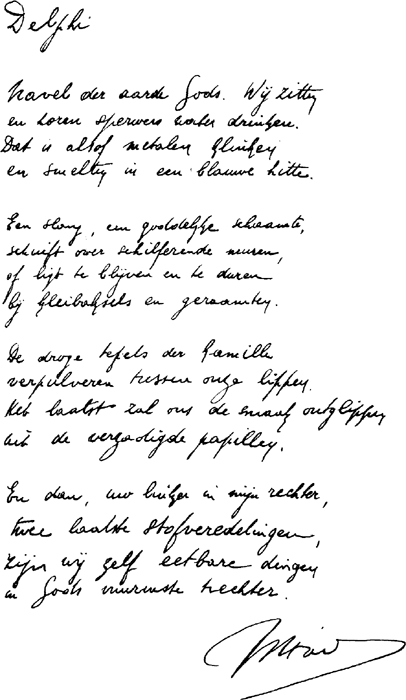 Delphi
Navel der aarde Gods. Wij zitten
en horen sperwers water drinken.
Dat is alsof metalen klinken
en smelten in een blauwe hitte.
Een slang, een goddelijke schaamte,
schuift over schilferende muren,
of ligt te blijven en te duren
bij kleibaksels en geraamten.
De droge tepels der kamille
verpulveren tussen onze lippen.
Het laatst zal ons de smaak ontglippen
uit de verzadigde papillen.
En dan, uw linker in mijn rechter,
twee laatste stofveredelingen,
zijn wij zelf eetbare dingen
in Gods trechter.